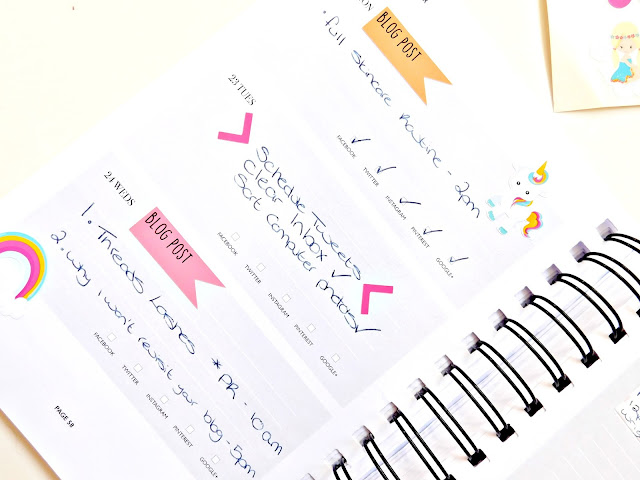 BLOG POST
. Full Skincare Routine - 2pm
FACEBOOK ✓
TWITTER ✓
INSTAGRAM ✓
PINTEREST ✓
GOOGLE+ ✓
23 TUES
Schedule Tweets
Clear Inbox ✓
Sort Computer photos ✓
FACEBOOK
TWITTER
INSTAGRAM
PINTEREST
GOOGLE+
24 WEDS
BLOG POST
1. Threads Lashes * PR - 10am
2. Why I won't revisit your blog - 5pm
FACEBOOK
TWITTER
INSTAGRAM
PINTEREST
GOOGLE+
PAGE